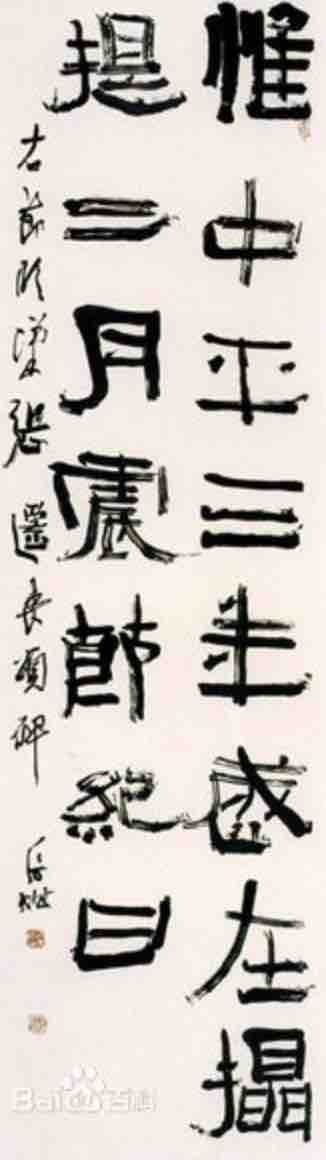 惟中平三年歲在攝
提二月震節紀日
右節臨漢張遷表頌碑
Bai百科